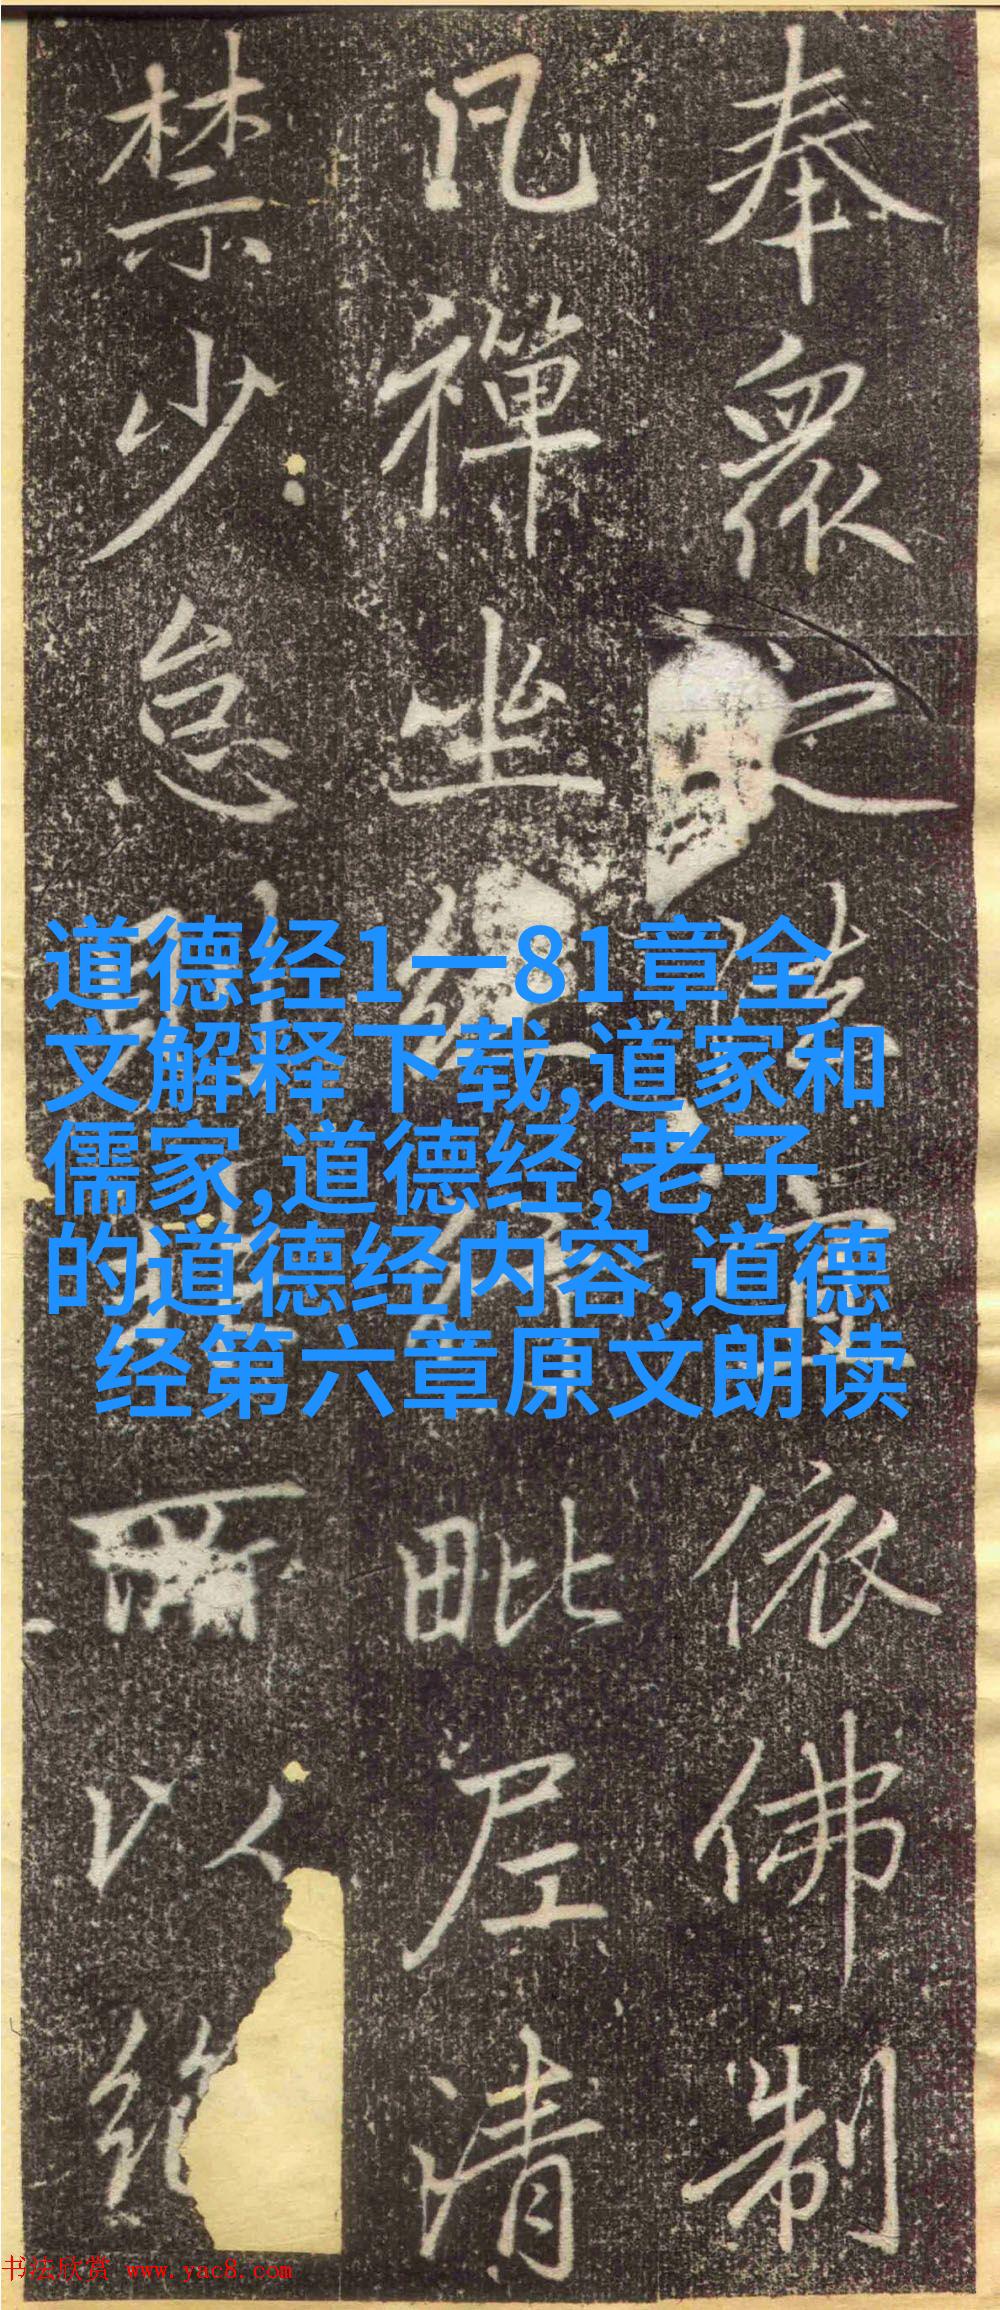 奉眾
依佛制
凡禪坐
毗尼清
禁少怠
以絶
道德经1一81章全
文解释下载,道家和
儒家,道德经,老子
的道德经内容,道德
经第六章原文朗读
书法欣赏 www.yac8.com